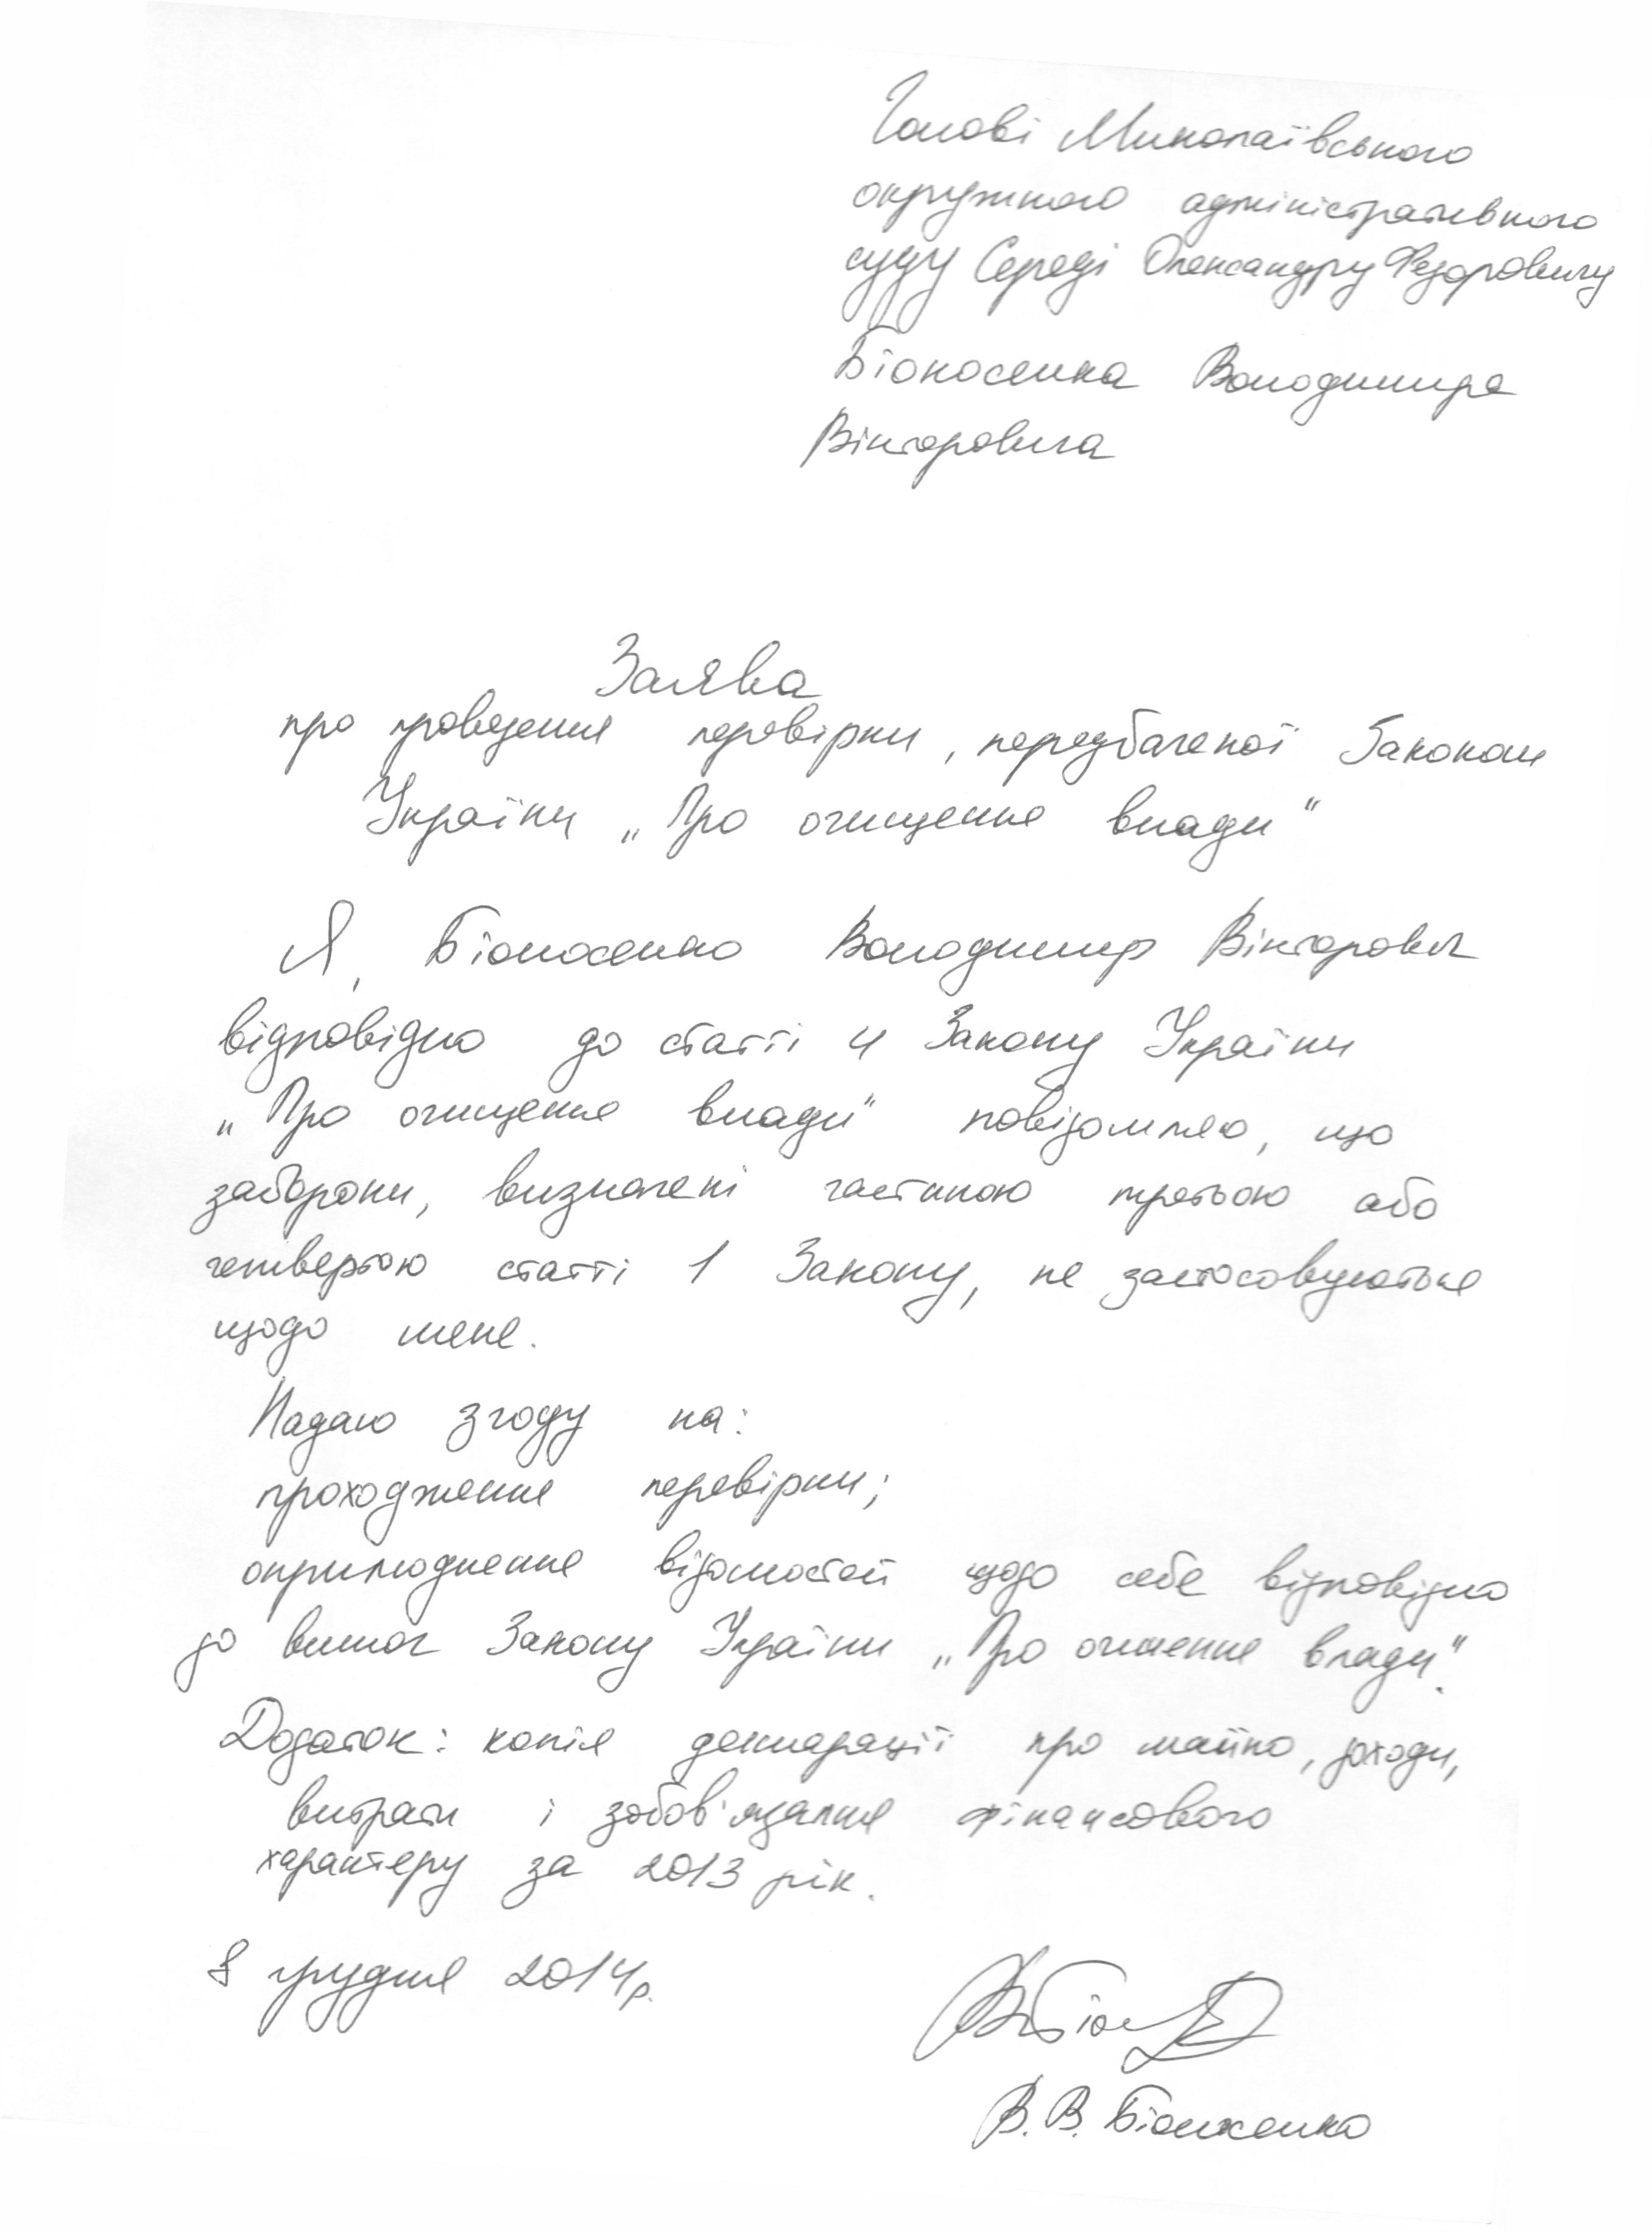 Голові Миколаївського
окружного адміністративного
суду Середі Олександру Федоровичу
Біоносенка Володимира
Вікторовича
Заява
про проведення перевірки, передбаченої Законом
України „Про очищення влади"
Я, Біоносенко Володимир Вікторович
відповідно до статті 4 Закону України
„Про очищення влади" повідомляю, що
заборони, визначені частиною третьою або
четвертою статті 1 Закону, не застосовуються
щодо мене.
Надаю згоду на:
проходження перевірки;
оприлюднення відомостей щодо себе відповідно
до вимог Закону України „Про очищення влади".
Додаток: копія декларації про майно, доходи,
витрати і зобов'язання фінансового
характеру за 2013 рік.
8 грудня 2014р.
В.В. Біоносенко